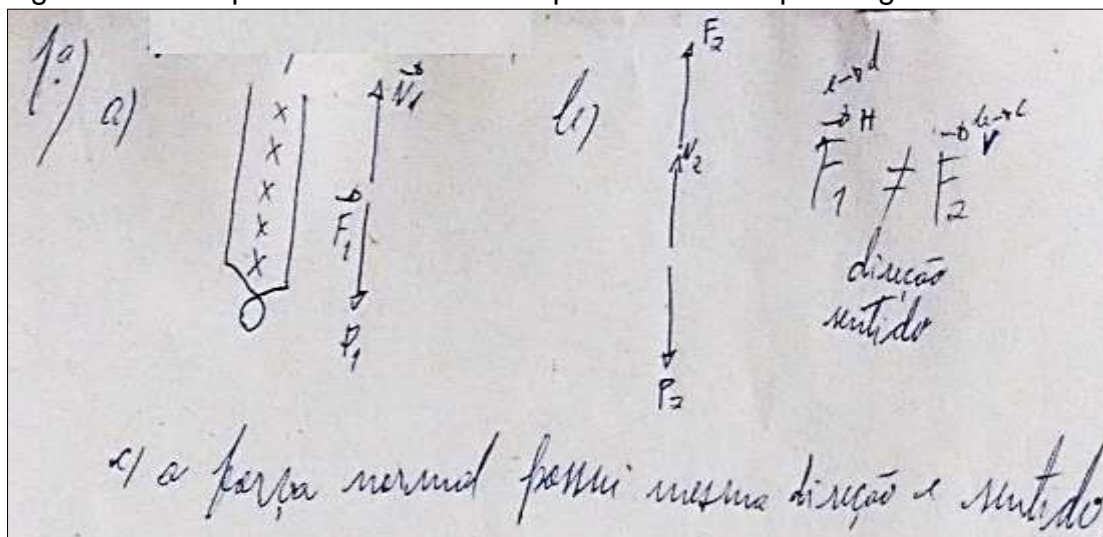 1ª) a)
N1
F1
P1
b)
F2
N2
P2
e→d
H
F1 ≠ F2
b→c
V
direção
sentido
c) a força normal possui mesma direção e sentido